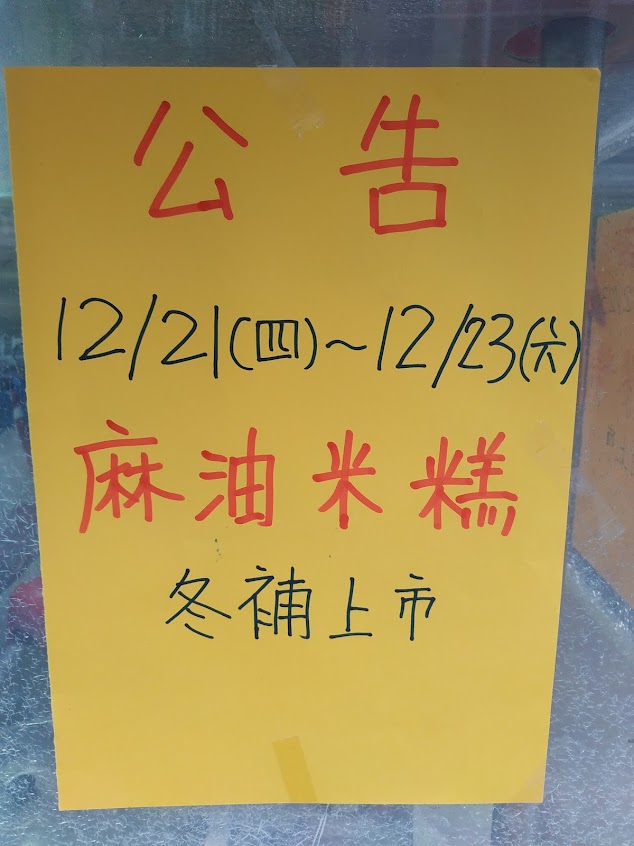 公告
12/21(四)~12/23(六)
麻油米糕
冬補上市